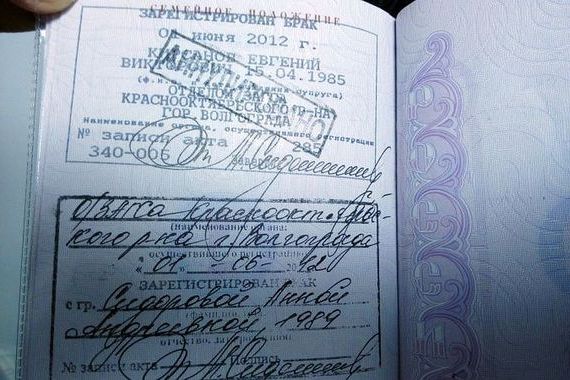 СЕМЕЙНОЕ ПОЛОЖЕНИЕ
ЗАРЕГИСТРИРОВАН БРАК
01 июня 2012 г.
ЕВГЕНИЙ
15.04.1985
ОТДЕЛОМ
КРАСНООКТЯБРЬСКОГО Р-НА
ГОР. ВОЛГОГРАДА
Наименование органа, осуществившего регистрации
№ записи акта 285
340-006
ОЗАГСа Краснооктябрьс-
кого р-на г. Волгограда
(наименование органа:
осуществившего регистрацию)
"01" - 06 - 2012
ЗАРЕГИСТРИРОВАН БРАК
с гр. Сидоровой Анной
Андреевной, 1989
отчество, дата рождения
№ записи акта Подпись